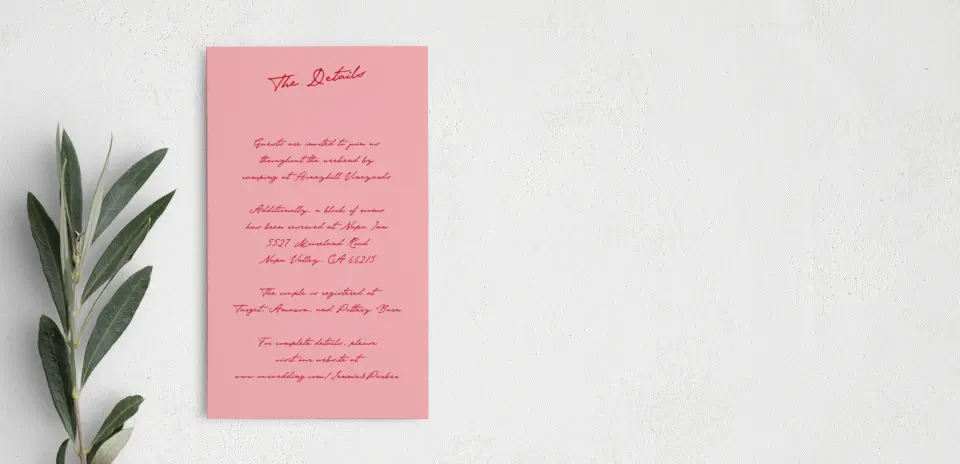 The Details
Guests are invited to join us
throughout the weekend by
camping at Honeyhill Vineyards
Additionally, a block of rooms
has been reserved at Napa Inn
5527 Road
Napa Valley, CA 66215
The couple is registered at
Target, Amazon, and Pottery Barn
For complete details, please
visit our website at